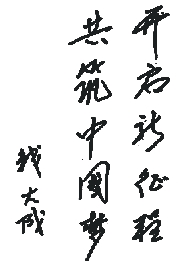 开启新征程
共筑中国梦
钱大成